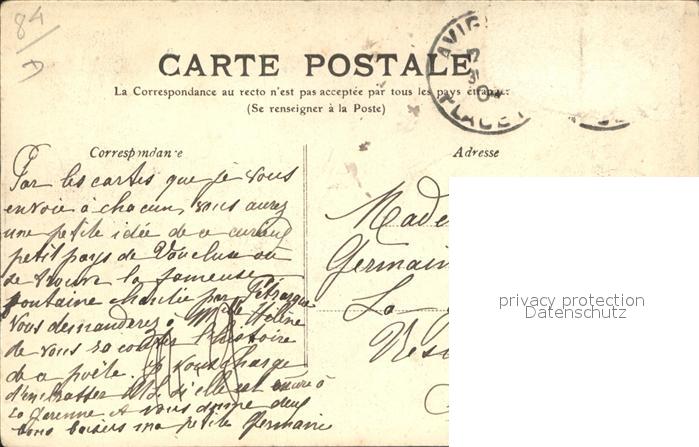 84
D
CARTE POSTALE
La Correspondance au recto n'est pas acceptée par tous les pays étranger
(Se renseigner à la Poste)
AVIG
PLACE
Correspondance
Adresse
Par les cartes que je vous
envoie à chacun, vous aurez
une petite idée de ce curieux
petit pays de Vaucluse où
se trouve la fameuse
fontaine chantée par Pétrarque
Vous demanderez à Mlle Céline
de vous raconter l'histoire
de ce poète. Je vous charge
d'embrasser si elle est encore à
La Garenne et vous donne deux
bons baisers ma petite Germaine
Made
Germain
La
Vés
privacy protection
Datenschutz